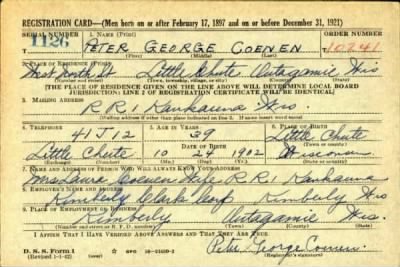 REGISTRATION CARD—(Men born on or after February 17, 1897 and on or before December 31, 1921)
SERIAL NUMBER 1. NAME (Print) ORDER NUMBER
1126 PETER GEORGE COENEN 10241
(First) (Middle) (Last)
2. PLACE OF RESIDENCE (Print)
West North St Little Chute Outagamie Wis
(Number and street) (Town, township, village, or city) (County) (State)
[THE PLACE OF RESIDENCE GIVEN ON THE LINE ABOVE WILL DETERMINE LOCAL BOARD
JURISDICTION; LINE 2 OF REGISTRATION CERTIFICATE WILL BE IDENTICAL]
3. MAILING ADDRESS
R R 1 Kaukauna Wis.
[Mailing address if other than place indicated on line 2. If same insert word same]
4. TELEPHONE 5. AGE IN YEARS 6. PLACE OF BIRTH
41 J 12 39 Little Chute
DATE OF BIRTH
Little Chute 10 24 1902 Wisconsin
(Exchange) (Number) (Mo.) (Day) (Yr.) (State or country)
7. NAME AND ADDRESS OF PERSON WHO WILL ALWAYS KNOW YOUR ADDRESS
Mrs Laura Coenen Wife R R 1 Kaukauna
8. EMPLOYER'S NAME AND ADDRESS
Kimberly Clark Corp Kimberly Wis
9. PLACE OF EMPLOYMENT OR BUSINESS
Kimberly Outagamie Wis.
(Number and street or R. F. D. number) (Town) (County) (State)
I AFFIRM THAT I HAVE VERIFIED ABOVE ANSWERS AND THAT THEY ARE TRUE.
D. S. S. Form 1
(Revised 1-1-42) (over) Peter George Coenen
(Registrant's signature)